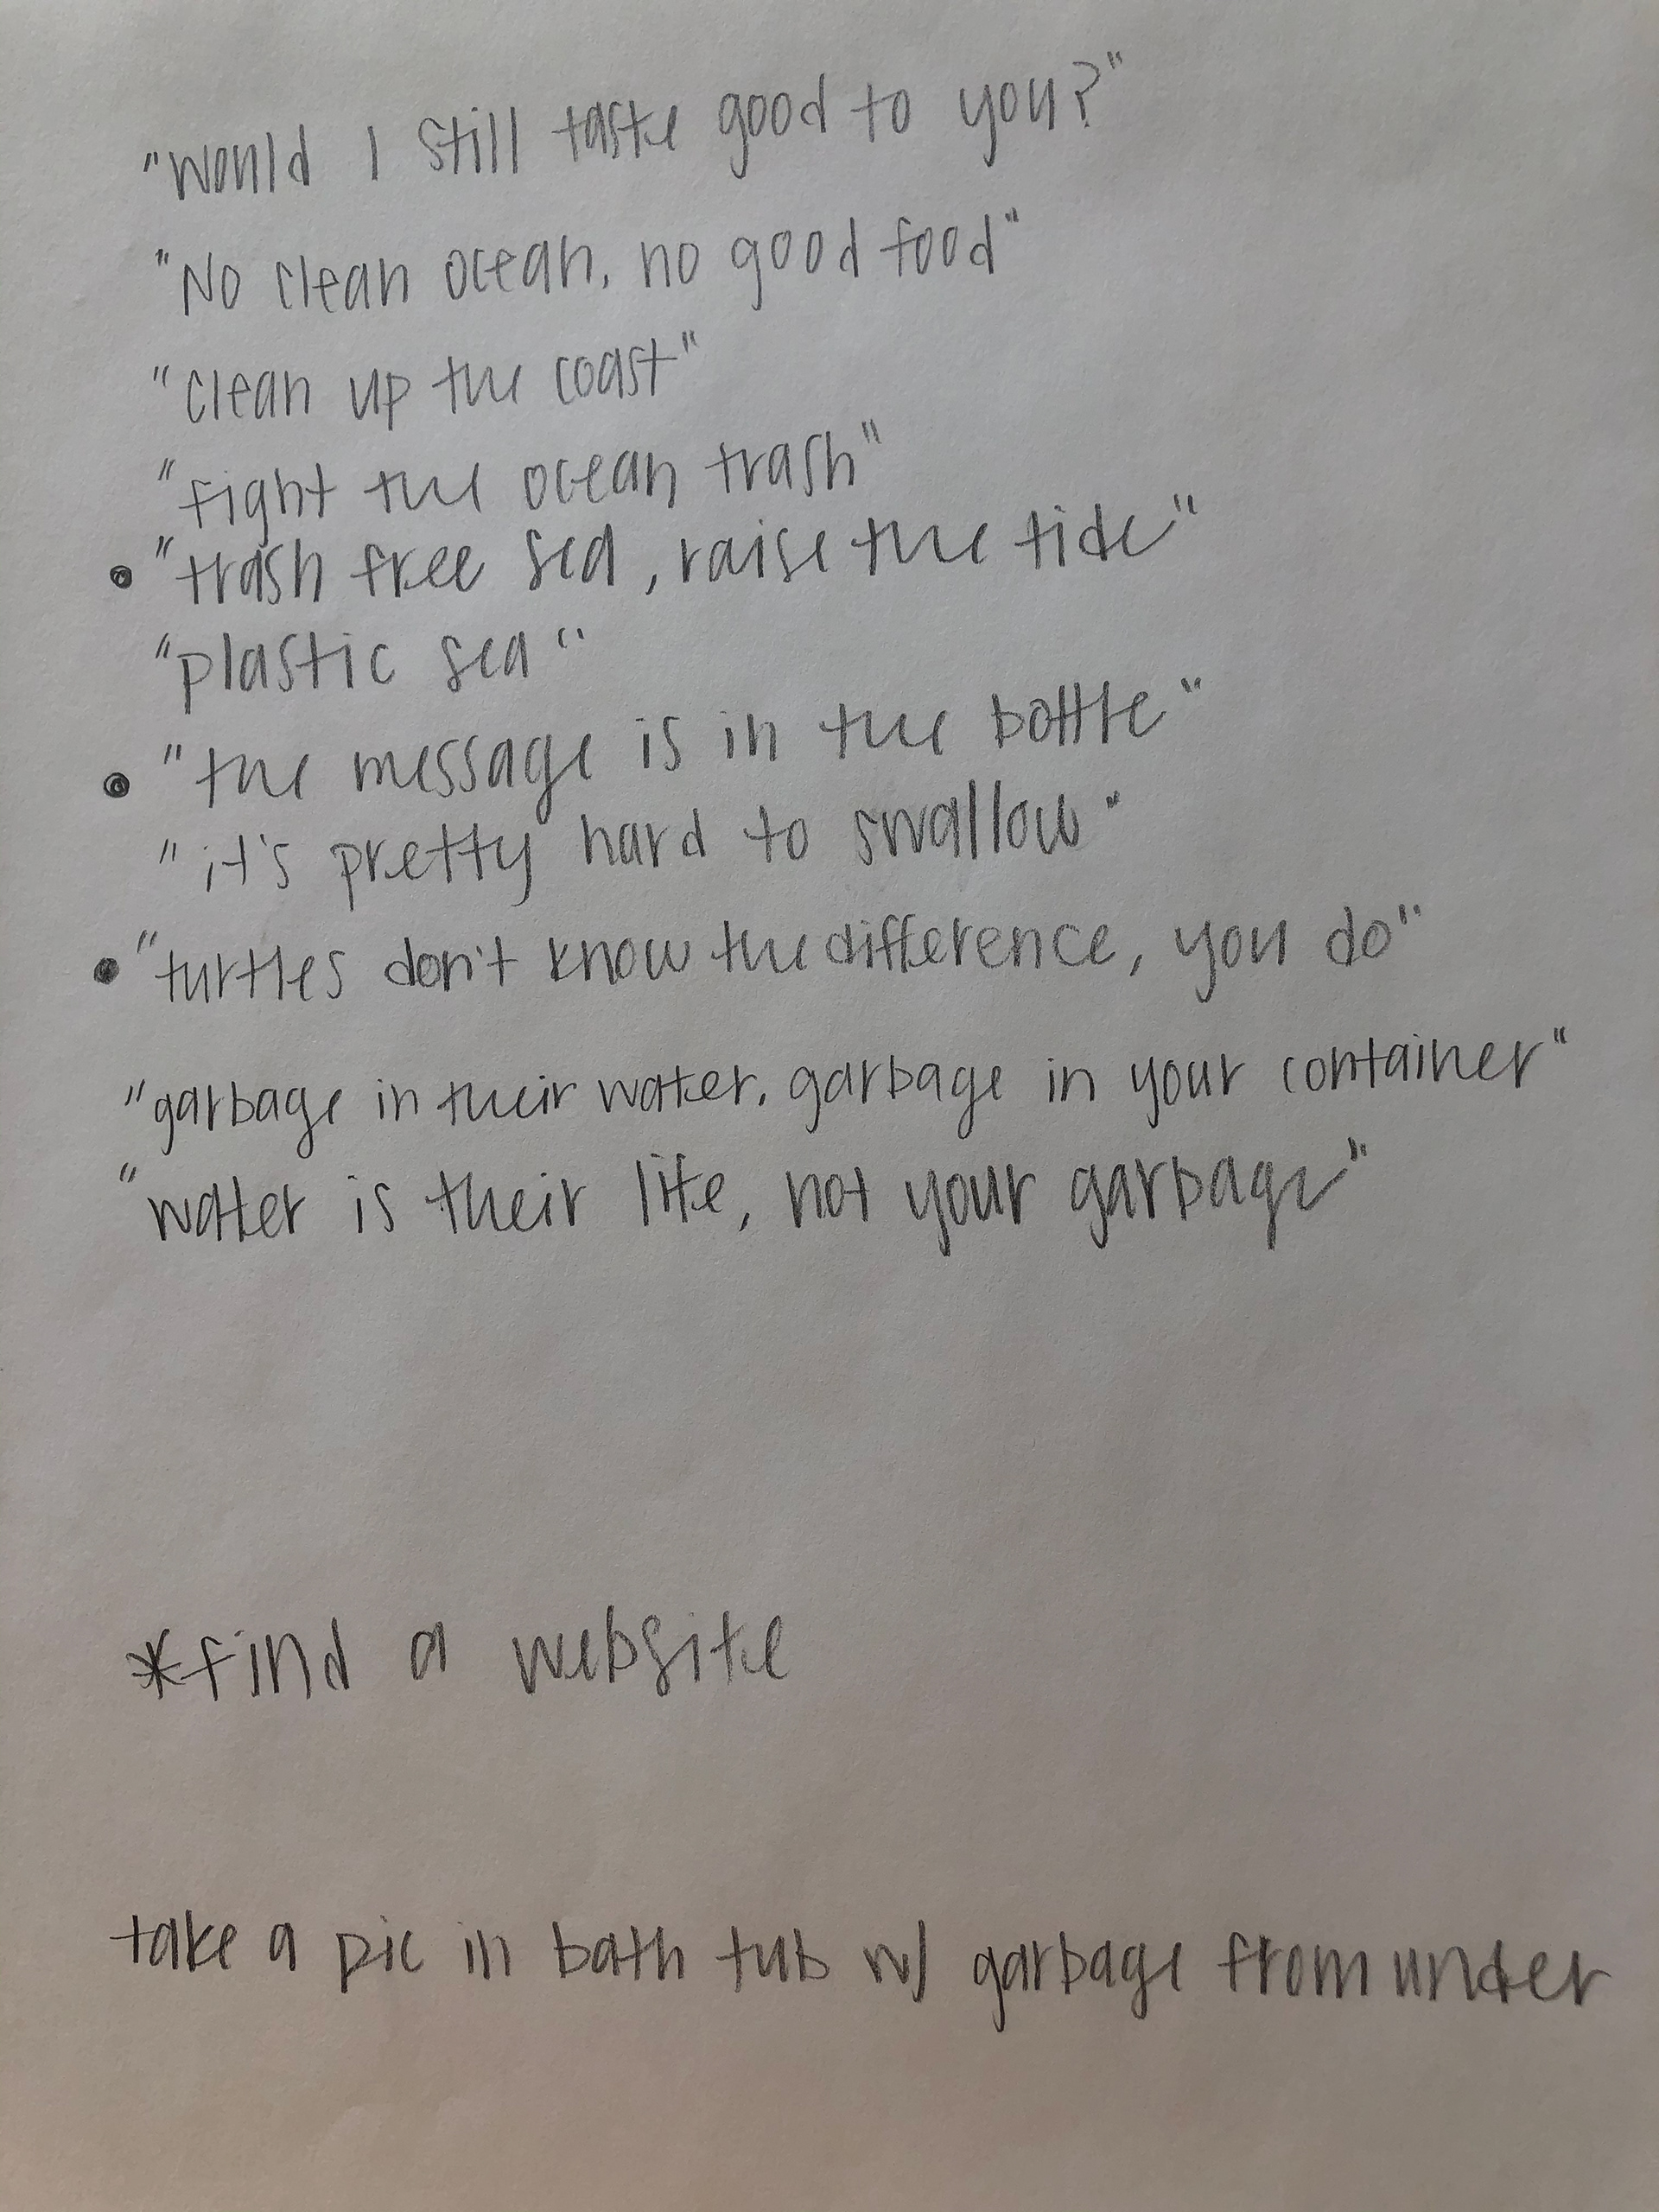 "would I still taste good to you?"
"No clean ocean, no good food"
"clean up the coast"
"fight the ocean trash"
• "trash free sea, raise the tide"
"plastic sea"
• "the message is in the bottle"
"it's pretty hard to swallow"
• "turtles don't know the difference, you do"
"garbage in their water, garbage in your container"
"water is their life, not your garbage"
*find a website
take a pic in bath tub w/ garbage from under